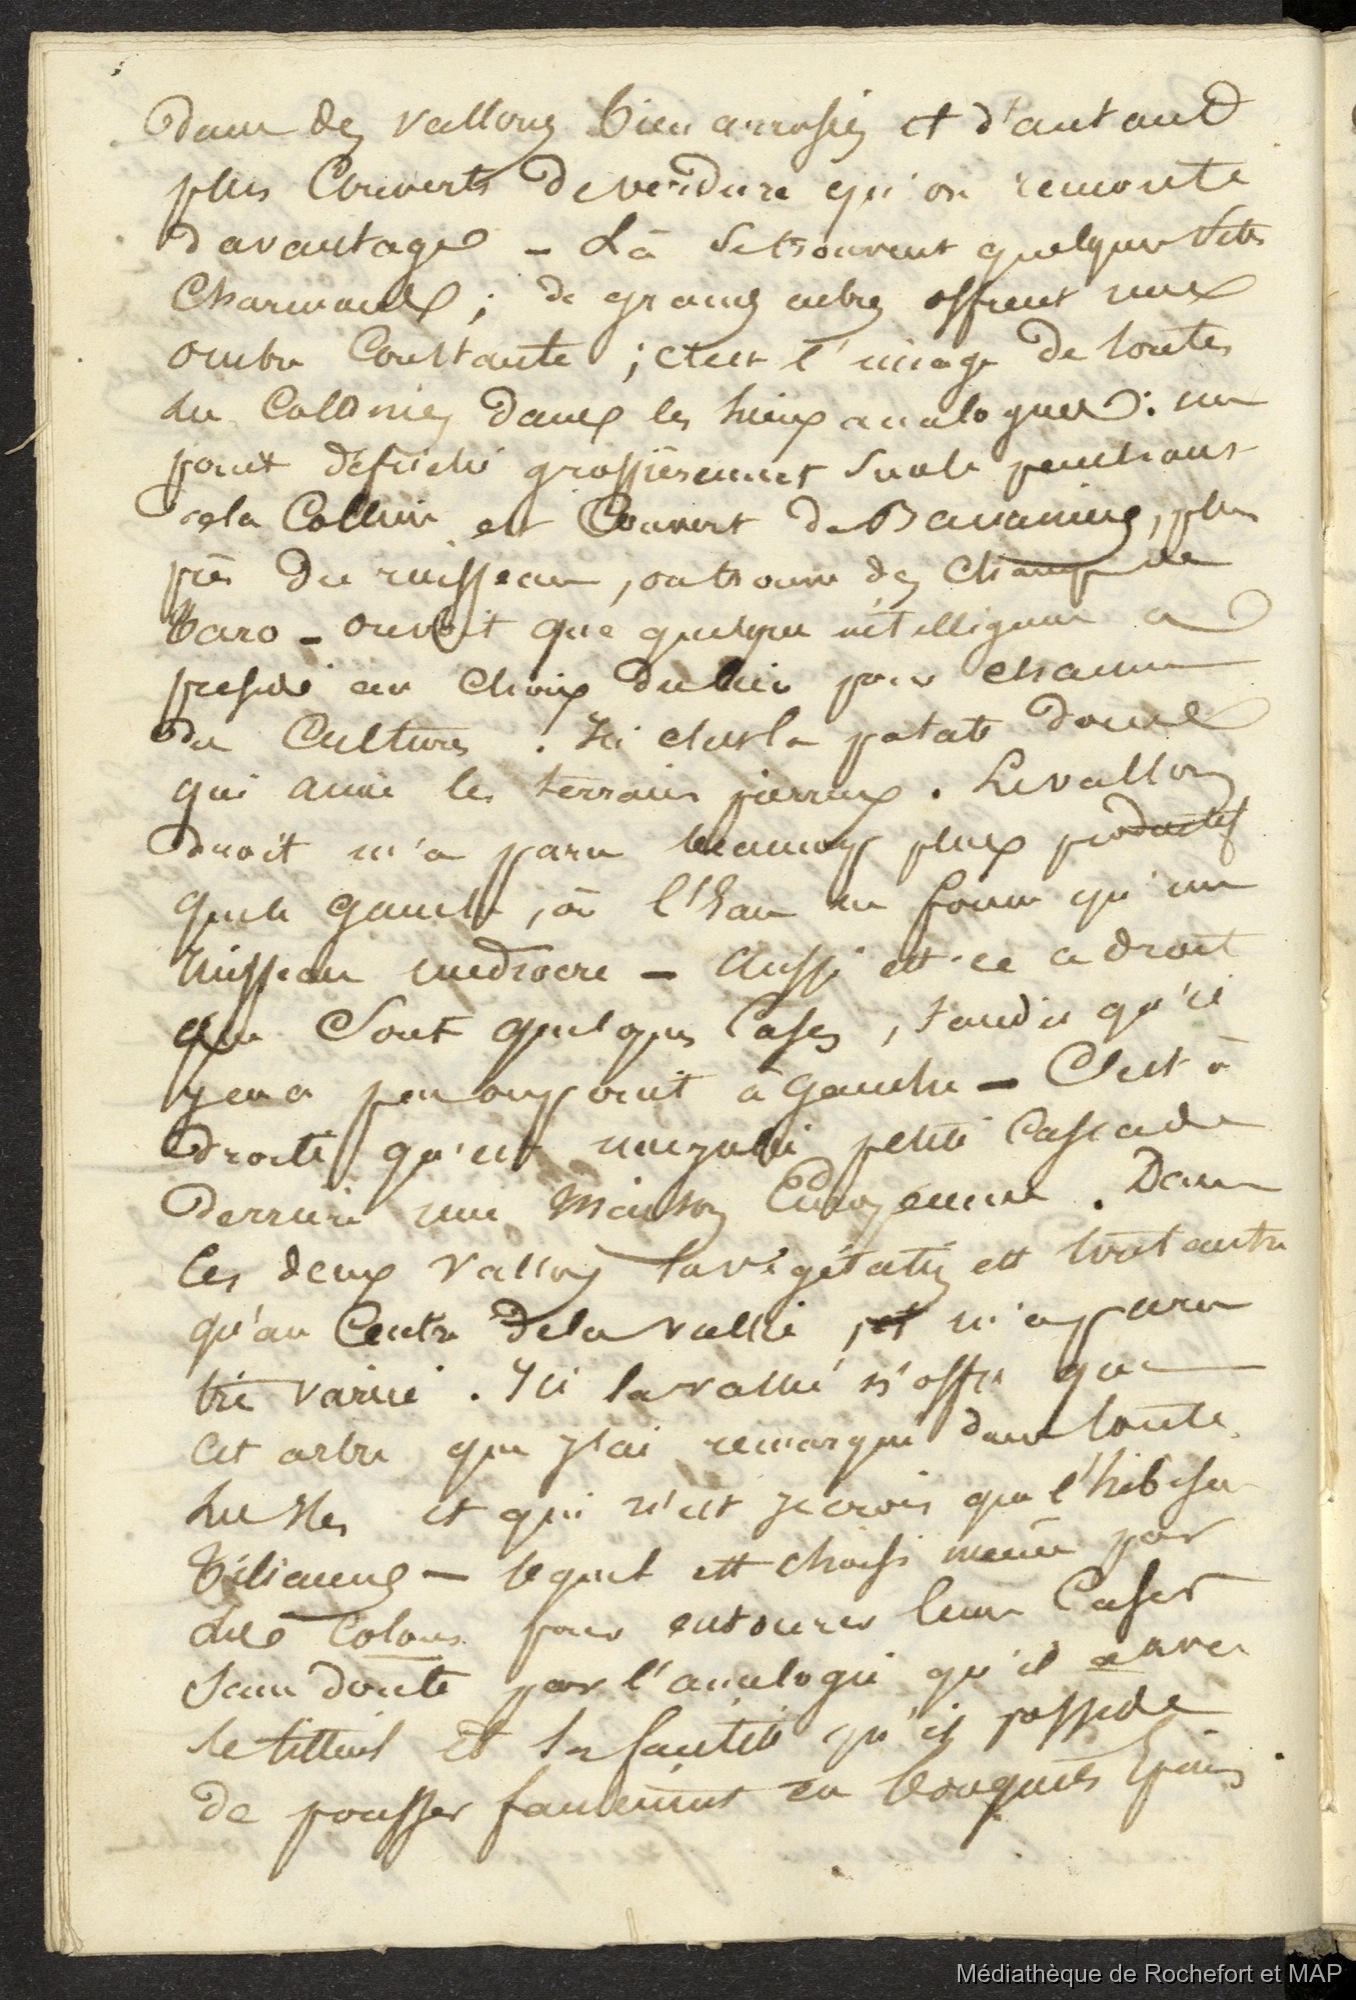 dans des vallons bien arrosés et d'autant
plus couverts de verdure qu'on remonte
davantage – Là se trouvent quelques sites
charmants ; de grands arbres offrent une
ombre constante ; c'est l'image de toutes
les colonies dans les lieux analogues : un
point défriché grossièrement sur le penchant
de la colline est couvert de Bananiers, plus
près du ruisseau, on trouve des champs de
Taro – on voit que quelque intelligence a
présidé au choix du lieu pour chacune
des cultures. Ici c'est la patate douce
qui aime les terrains pierreux. Le vallon
droit m'a paru beaucoup plus productif
que le gauche, où l'eau ne forme qu'un
ruisseau médiocre – aussi est-ce à droite
que sont quelques cases, tandis qu'il
y en a peu ou point à gauche – C'est à
droite qu'est une jolie petite cascade
derrière une maison Européenne. Dans
les deux vallons la végétation est tout autre
qu'au centre de la vallée, et m'a paru
très variée. Ici la vallée n'offre que
cet arbre que j'ai remarqué dans toutes
les Iles et qui n'est je crois que l'hibiscus
tiliaceus – lequel est choisi même par
les colons pour entourer leurs cases
sans doute par l'analogie qu'il a avec
le tilleul et la faculté qu'il possède
de pousser facilement en bouquets épais
Médiathèque de Rochefort et MAP